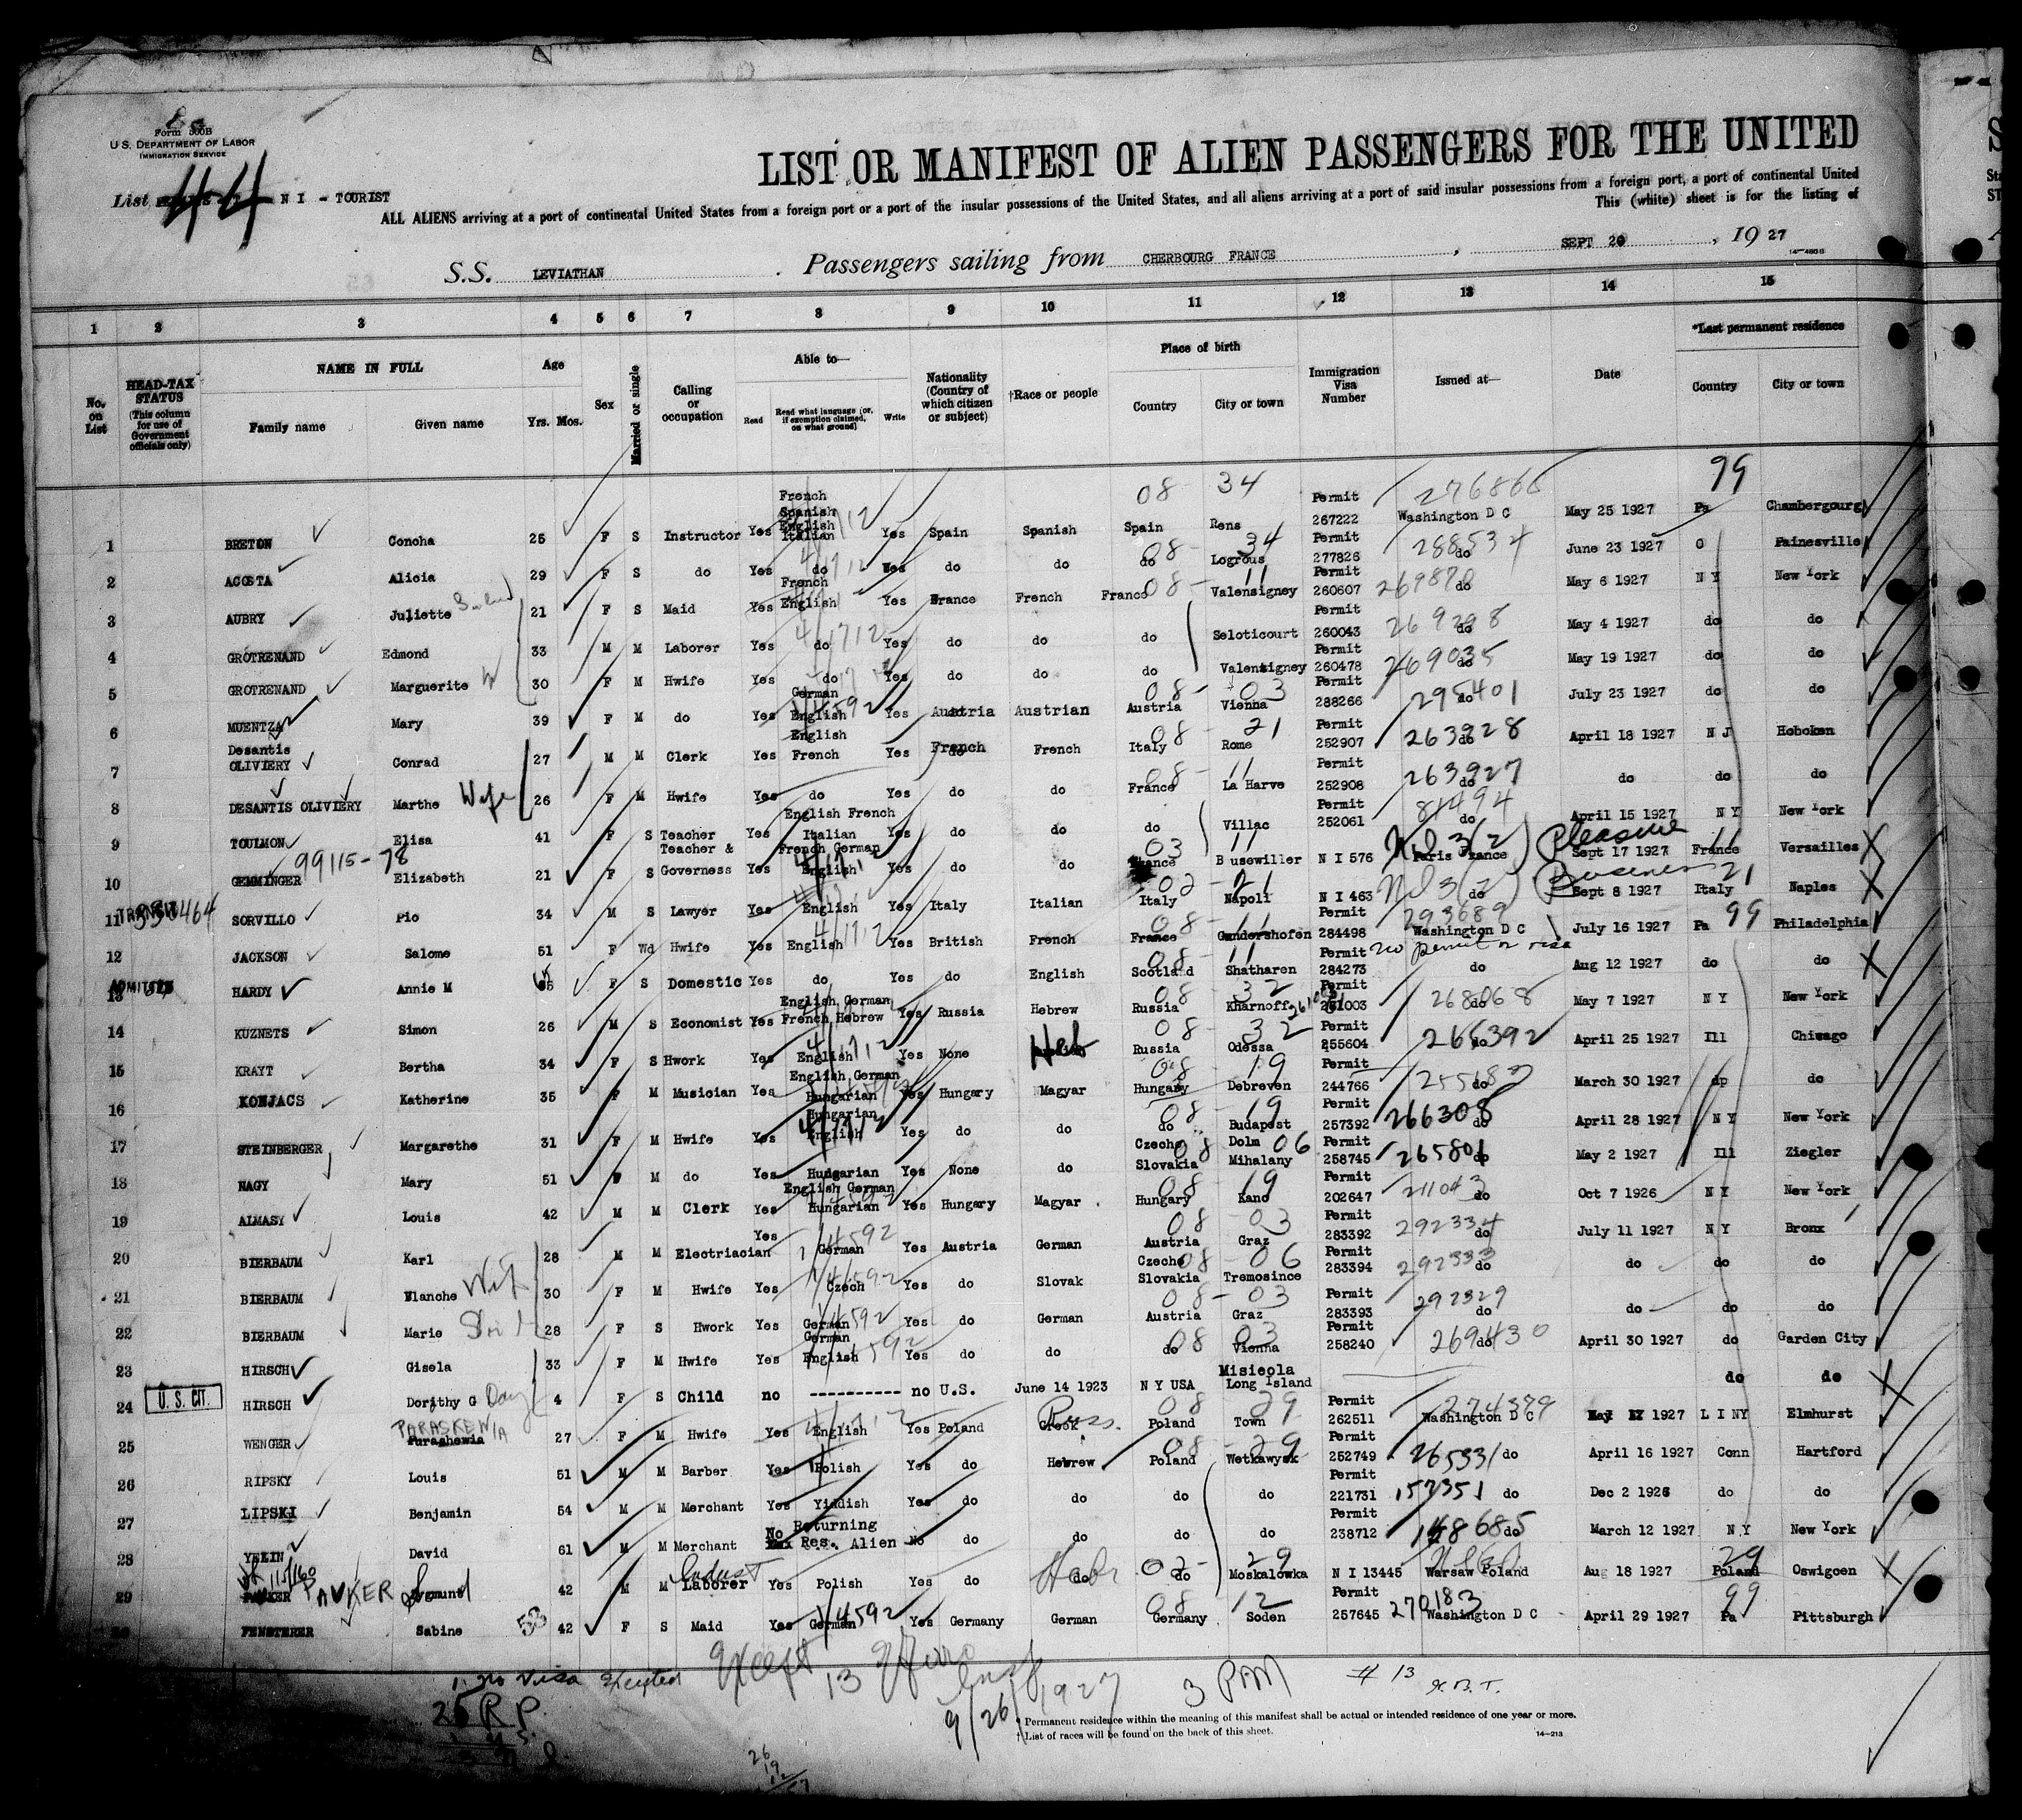 Form 500B
U. S. DEPARTMENT OF LABOR
IMMIGRATION SERVICE
List 44 N I - TOURIST
LIST OR MANIFEST OF ALIEN PASSENGERS FOR THE UNITED
ALL ALIENS arriving at a port of continental United States from a foreign port or a port of the insular possessions of the United States, and all aliens arriving at a port of said insular possessions from a foreign port, a port of continental United
This (white) sheet is for the listing of
S.S. LEVIATHAN Passengers sailing from CHERBOURG FRANCE , SEPT 20 , 19 27
1 2 3 4 5 6 7 8 9 10 11 12 13 14 15
No. on List HEAD-TAX STATUS (This column for use of Government officials only) NAME IN FULL Family name Given name Age Yrs. Mos. Sex Married or single Calling or occupation Able to— Read Read what language (or, if exemption claimed, on what ground) Write Nationality (Country of which citizen or subject) †Race or people Place of birth Country City or town Immigration Visa Number Issued at— Date *Last permanent residence Country City or town
1 BRETON Concha 25 F S Instructor Yes French Spanish English Italian Yes Spain Spanish Spain Rens Permit 267222 276866 Washington D C May 25 1927 Pa 99 Chambergourg
2 ACOSTA Alicia 29 F S do Yes do Yes do do do Logrous Permit 277826 288534 do June 23 1927 O Painesville
3 AUBRY Juliette 21 F S Maid Yes French English Yes France French France Valensigney Permit 260607 269878 do May 6 1927 N Y New York
4 GROTRENAND Edmond 33 M M Laborer Yes do Yes do do do Seloticourt Permit 260043 269298 do May 4 1927 do do
5 GROTRENAND Marguerite W 30 F M Hwife Yes do Yes do do do Valensigney Permit 260478 269035 do May 19 1927 do do
6 MUENTZA Mary 39 F M do Yes German English Yes Austria Austrian Austria Vienna Permit 288266 295401 do July 23 1927 do do
7 Desantis OLIVIERY Conrad 27 M M Clerk Yes English French Yes French French Italy Rome Permit 252907 263928 do April 18 1927 N J Hoboken
8 DESANTIS OLIVIERY Marthe Wife 26 F M Hwife Yes do Yes do do France La Harve Permit 252908 263927 do do do do
9 TOULMON Elisa 41 F S Teacher Yes English French Italian Yes do do do Villac Permit 252061 81494 do April 15 1927 N Y New York
10 GEMMINGER 99115-78 Elizabeth 21 F S Teacher & Governess Yes French German English Yes do do France Busewiller N I 576 3(2) Paris France Pleasure Sept 17 1927 France Versailles
11 TRANSIT SORVILLO Pio 34 M S Lawyer Yes English Yes Italy Italian Italy Napoli N I 463 3(2) do Business Sept 8 1927 Italy Naples
12 JACKSON Salome 51 F Wd Hwife Yes English Yes British French France Gundershofen Permit 284498 293689 Washington D C July 16 1927 Pa 99 Philadelphia
13 ADMITTED HARDY Annie M F S Domestic Yes do Yes do English Scotland Shatharen Permit 284273 no permit or visa do Aug 12 1927 do do
14 KUZNETS Simon 26 M S Economist Yes English German French Hebrew Yes Russia Hebrew Russia Kharnoff Permit 261003 268068 do May 7 1927 N Y New York
15 KRAYT Bertha 34 F S Hwork Yes English Yes None Heb Russia Odessa Permit 255604 266392 do April 25 1927 Ill Chicago
16 KONJACS Katherine 35 F M Musician Yes English German Hungarian Yes Hungary Magyar Hungary Debreven Permit 244766 do March 30 1927 do do
17 STEINBERGER Margarethe 31 F M Hwife Yes Hungarian English Yes do do do Budapest Permit 257392 266308 do April 28 1927 N Y New York
18 NAGY Mary 51 F M do Yes Hungarian Yes None do Czecho Slovakia Dolm Mihalany Permit 258745 265801 do May 2 1927 Ill Ziegler
19 ALMASY Louis 42 M M Clerk Yes English German Hungarian Yes Hungary Magyar Hungary Kano Permit 202647 211043 do Oct 7 1926 N Y New York
20 BIERBAUM Karl 28 M M Electriacian Yes German Yes Austria German Austria Graz Permit 283392 292334 do July 11 1927 N Y Bronx
21 BIERBAUM Blanche Wife 30 F M Hwife Yes Czech Yes do Slovak Czecho Slovakia Tremosince Permit 283394 292333 do do do do
22 BIERBAUM Marie 28 F S Hwork Yes German Yes do German Austria Graz Permit 283393 292329 do do do do
23 HIRSCH Gisela 33 F M Hwife Yes German English Yes do do do Vienna Permit 258240 269430 do April 30 1927 do Garden City
24 U. S. CIT. HIRSCH Dorithy G Dau 4 F S Child no ---------- no U.S. June 14 1923 N Y USA Misieola Long Island do do
25 WENGER PARASKEWIA Purashewia 27 F M Hwife Yes English Yes Poland Greek Russ. Poland Town Permit 262511 274379 Washington D C May 1927 L I NY Elmhurst
26 RIPSKY Louis 51 M M Barber Yes Polish Yes do Hebrew Poland Wotkawysk Permit 252749 265331 do April 16 1927 Conn Hartford
27 LIPSKI Benjamin 54 M M Merchant Yes Yiddish Yes do do do do Permit 221731 157351 do Dec 2 1926 do do
28 David 61 M M Merchant No Returning Res. Alien No do do do do Permit 238712 do March 12 1927 N Y New York
29 PAUKER PAVKER Zygmund 42 M M Laborer Yes Polish Yes do do Hebr do Moskalowka N I 13445 Warsaw Poland Aug 18 1927 Poland 29 Oswigcen
30 FENSTERER Sabine 42 F S Maid Yes German Yes Germany German Germany Soden Permit 257645 270183 Washington D C April 29 1927 Pa 99 Pittsburgh
1. no Visa Except 13
25 R P.
9/26/1927
3 PM
# 13
* Permanent residence within the meaning of this manifest shall be actual or intended residence of one year or more.
† List of races will be found on the back of this sheet.
14—213